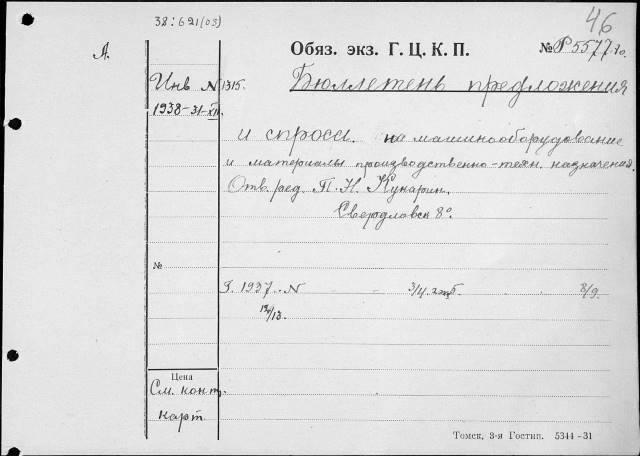 46
38:621(03)
А.
Обяз. экз. Г. Ц. К. П. №Р5577 10.
Инв N 1315.
1938-31-XII.
Бюллетень предложения
и спроса на машинооборудование
и материалы производственно-техн. назначения.
Отв. ред. П. Н. Кунарин.
Свердловск 8°.
№
Г. 1937 N 3/4 8/9.
12/13.
Цена
См. конт.
карт.
Томск, 3-я Гостип. 5344-31